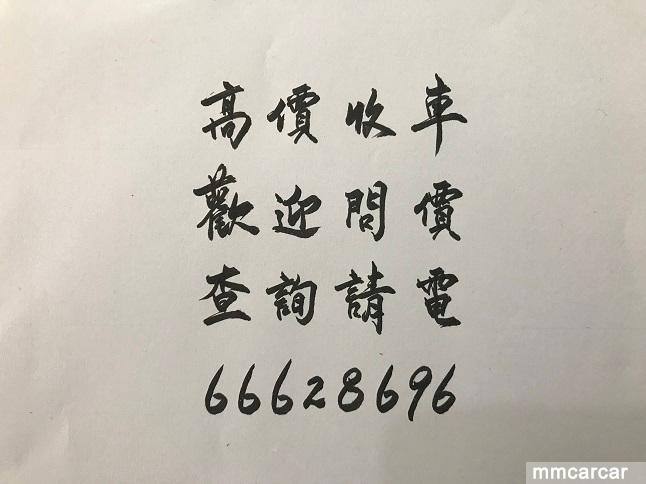 高價收車
歡迎問價
查詢請電
66628696
mmcarcar